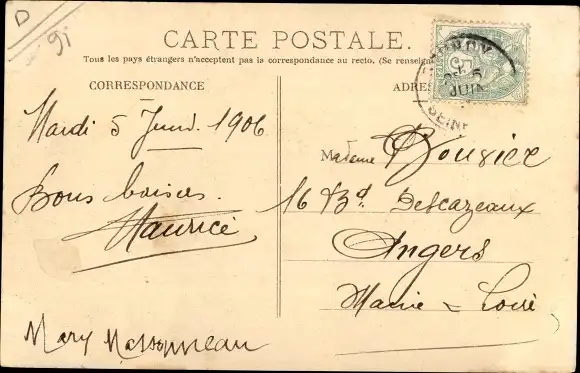 D
91
CARTE POSTALE.
Tous les pays étrangers n'acceptent pas la correspondance au recto. (Se renseigne
CORRESPONDANCE
ADRES
5 JUIN
SEINE
Mardi 5 Juin. 1906
Bons baisers.
Maurice
Mary Massonneau
Madame Bousier
16 Bd. Descazeaux
Angers
Maine & Loire